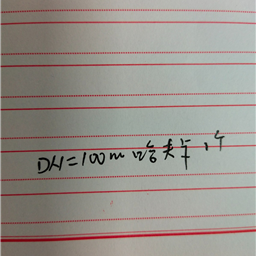 DN=100m 哈夫车 1个